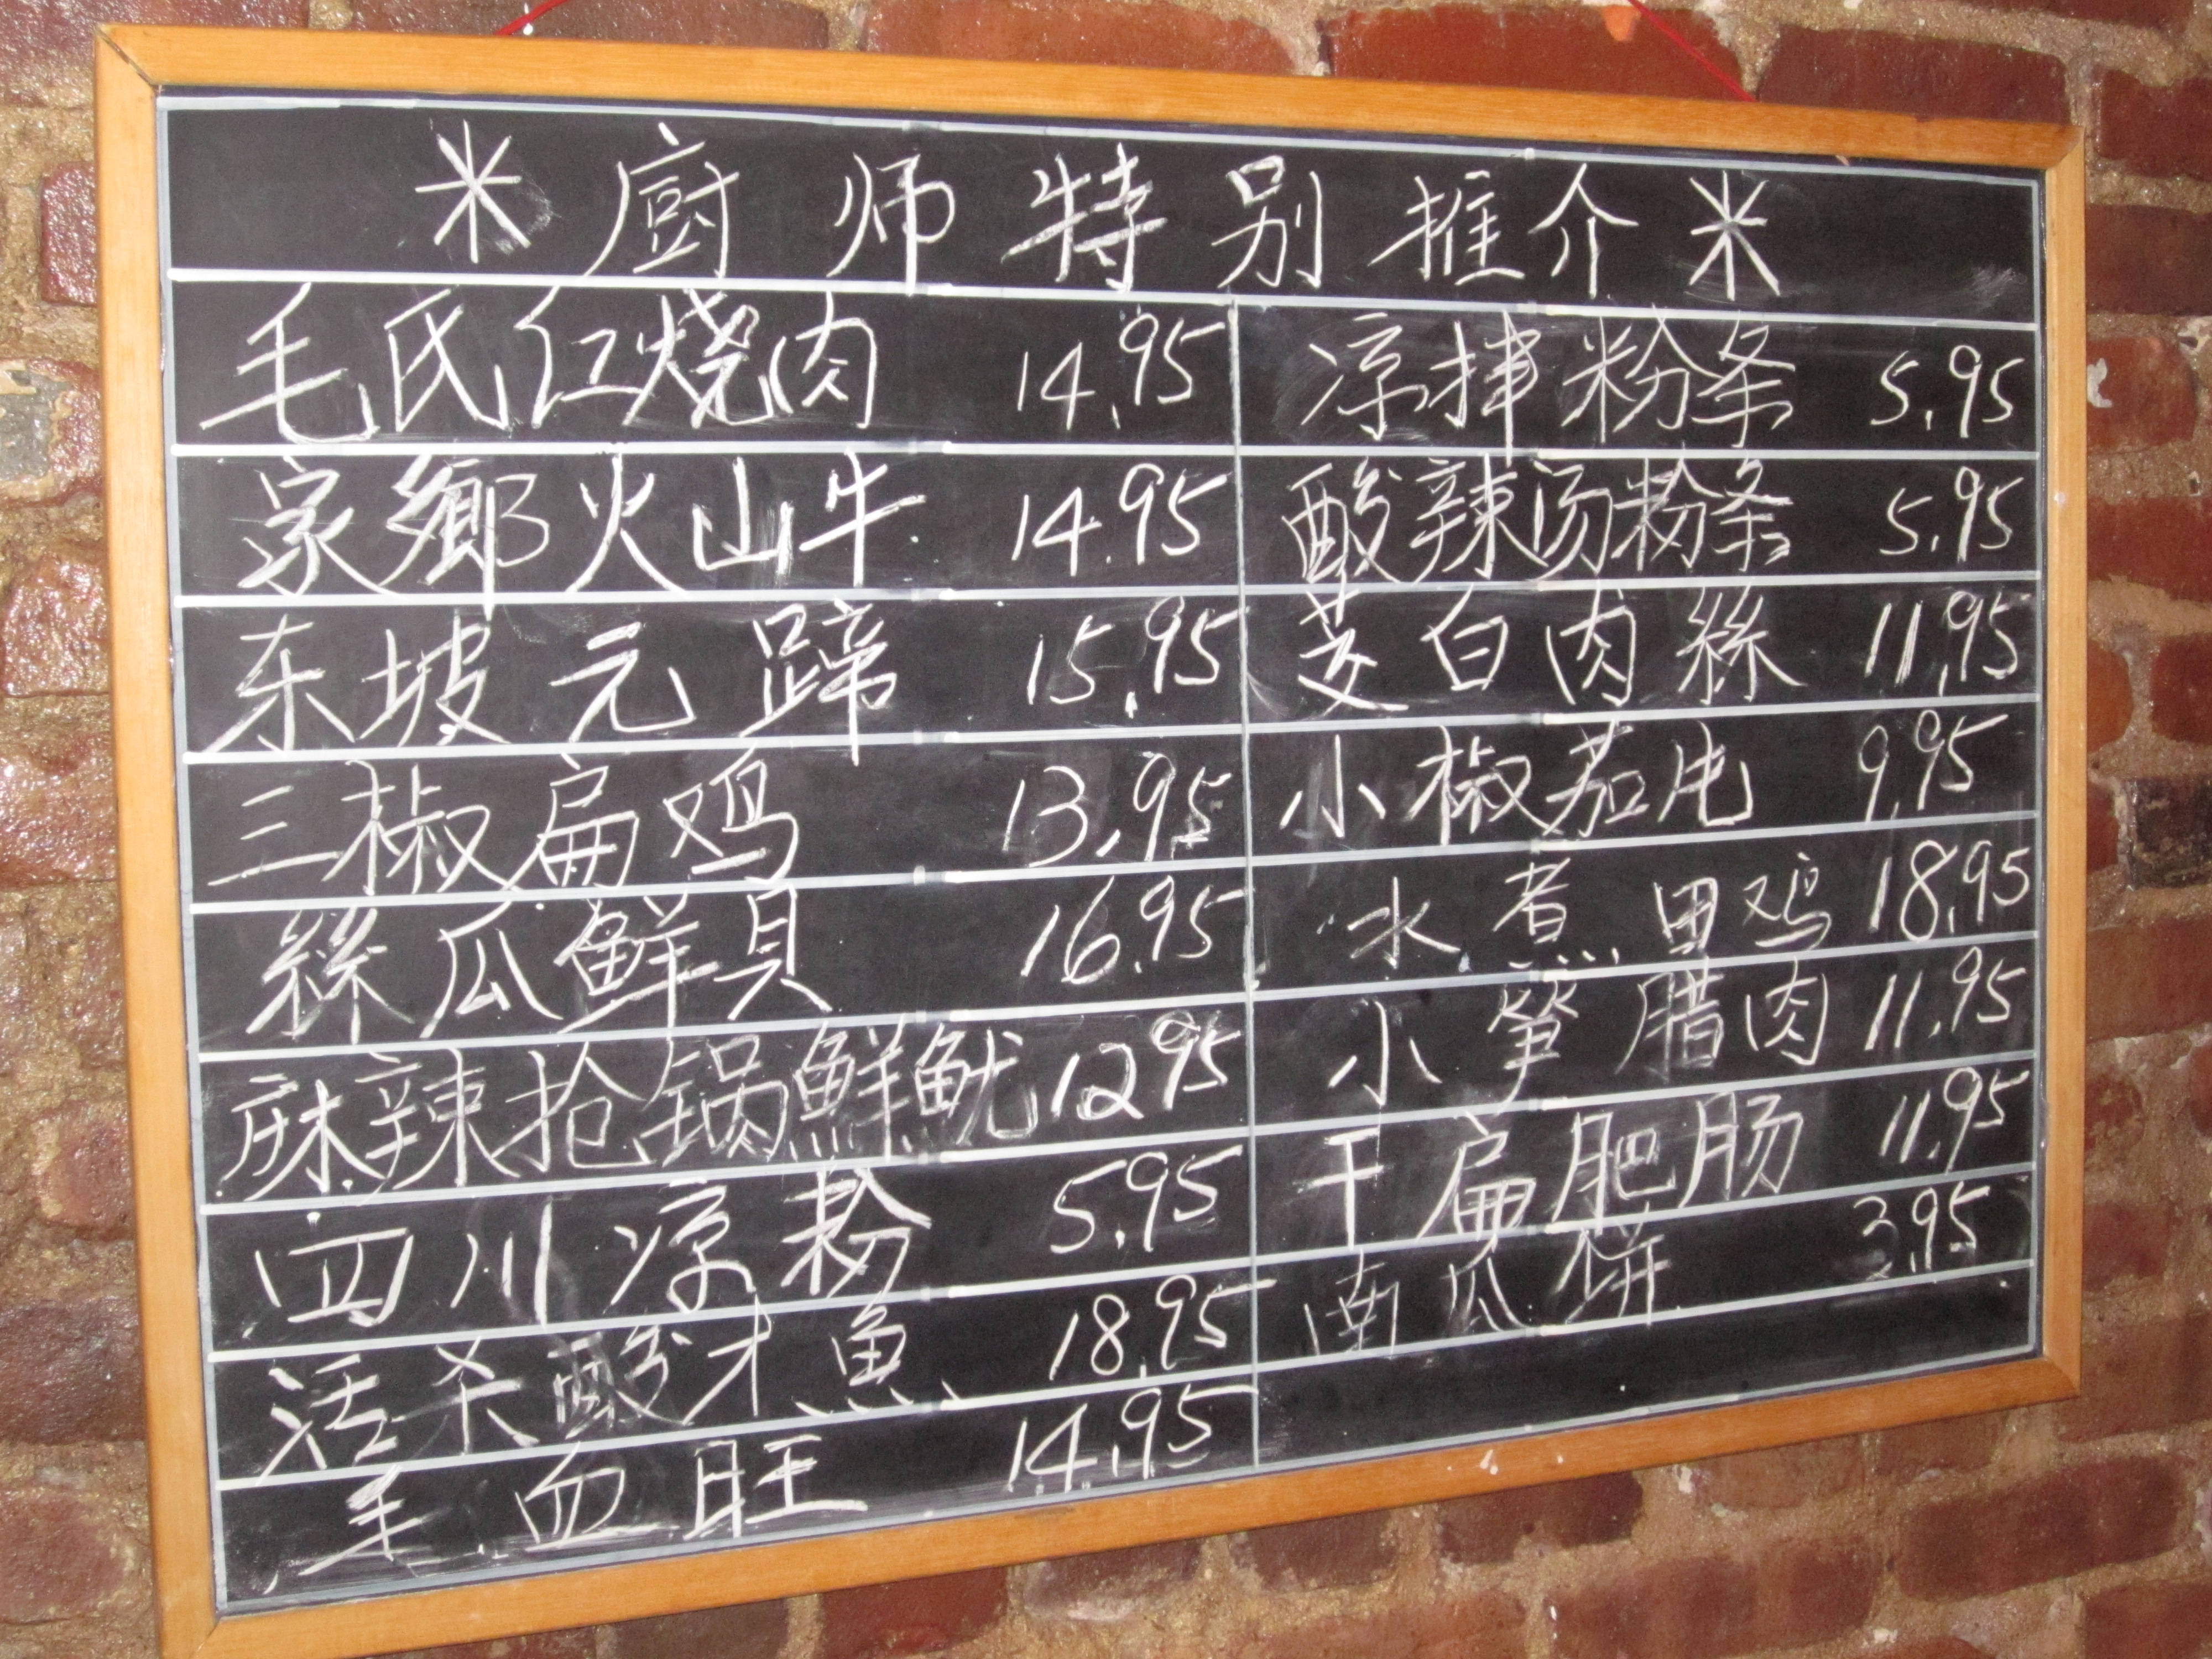 *厨师特别推介*
毛氏红烧肉 14.95
家鄉火山牛 14.95
东坡元蹄 15.95
三椒扁鸡 13.95
絲瓜鲜贝 16.95
麻辣抢锅鲜鱿 12.95
四川凉粉 5.95
活杀酸才鱼 18.95
毛血旺 14.95
凉拌粉条 5.95
酸辣汤粉条 5.95
茭白肉絲 11.95
小椒茄片 9.95
水煮田鸡 18.95
小笋腊肉 11.95
干扁肥肠 11.95
南瓜饼 3.95